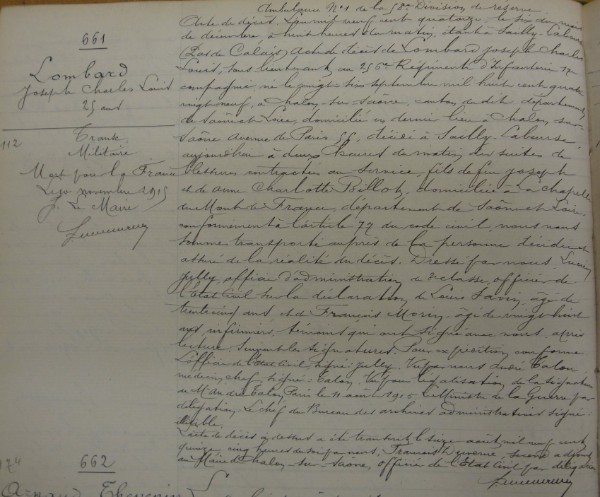 Ambulance N°1 de la 58e Division de réserve
Acte de décès. L'an mil neuf cent quatorze le six du mois
661
de décembre, à huit heures du matin, étant à Sailly-Labourse
Lombard
(Pas de Calais) Acte de décès de Lombard Joseph Charles
Joseph Charles Louis
Louis, sous lieutenant, au 256e Régiment d'Infanterie 17e
25 ans
compagnie, né le vingt six septembre mil huit cent quatre
vingt neuf, à Chalon sur Saône, canton du dit département
de Saône et Loire, domicilié en dernier lieu à Chalon sur
Transc.
Saône Avenue de Paris 55, décédé à Sailly Labourse
112
Militaire
aujourd'hui à deux heures du matin, des suites de
Mort pour la France
blessures, fils de feu Joseph
Le 30 novembre 1915
et de Anne Charlotte Billot, domiciliée à La Chapelle
Le Maire
du Mont de France, département de Saône et Loire
conformément à l'article 77 du code civil, nous nous
sommes transporté auprès de la personne décédée et
assuré de la réalité du décès. Dressé par nous Lucien
Jully, officier d'administration de 2e classe, officier de
l'Etat Civil sur la déclaration de Louis Favry, âgé de
trente cinq ans, et de François Morin, âgé de vingt huit
ans infirmiers, témoins qui ont signé avec nous, après
lecture. Suivent les signatures. Pour expédition conforme
L'officier de l'Etat Civil, signé: Jully. Vu par nous André Talon
médecin chef, signé: Talon. Vu pour légalisation de la signature
de M. André Talon, Paris le 11 août 1915, le Ministre de la Guerre par
délégation, Le chef du Bureau des archives administratives signé:
L'acte de décès ci dessus a été transcrit le seize août mil neuf cent
quinze, cinq heures du soir par nous, François
au Maire de Chalon sur Saône, officier de l'Etat Civil par délégation
174
662
Arnaud Thevenin